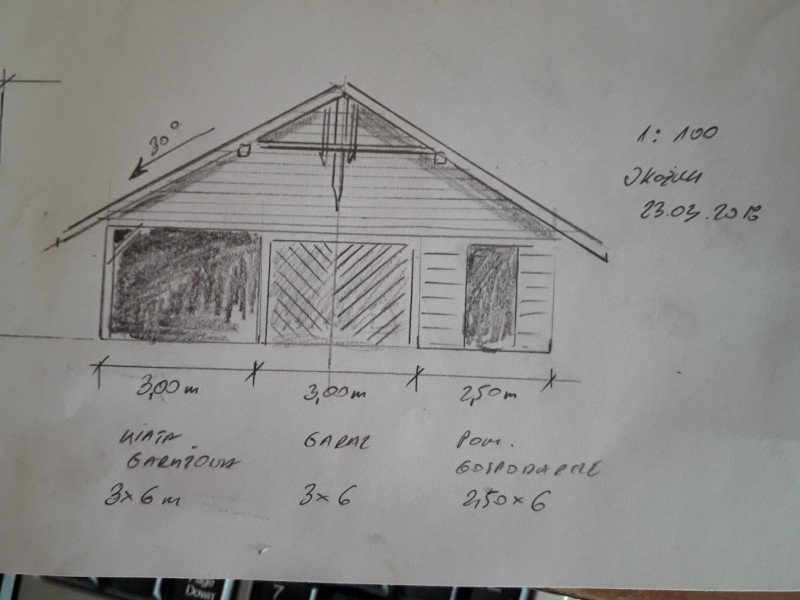 30°
1:100
23.03.201
3,00 m
3,00 m
2,50 m
WIATA
GARAŻOWA
3×6 m
GARAŻ
3×6
POM.
GOSPODARCZE
2,50×6
Page
Down
7